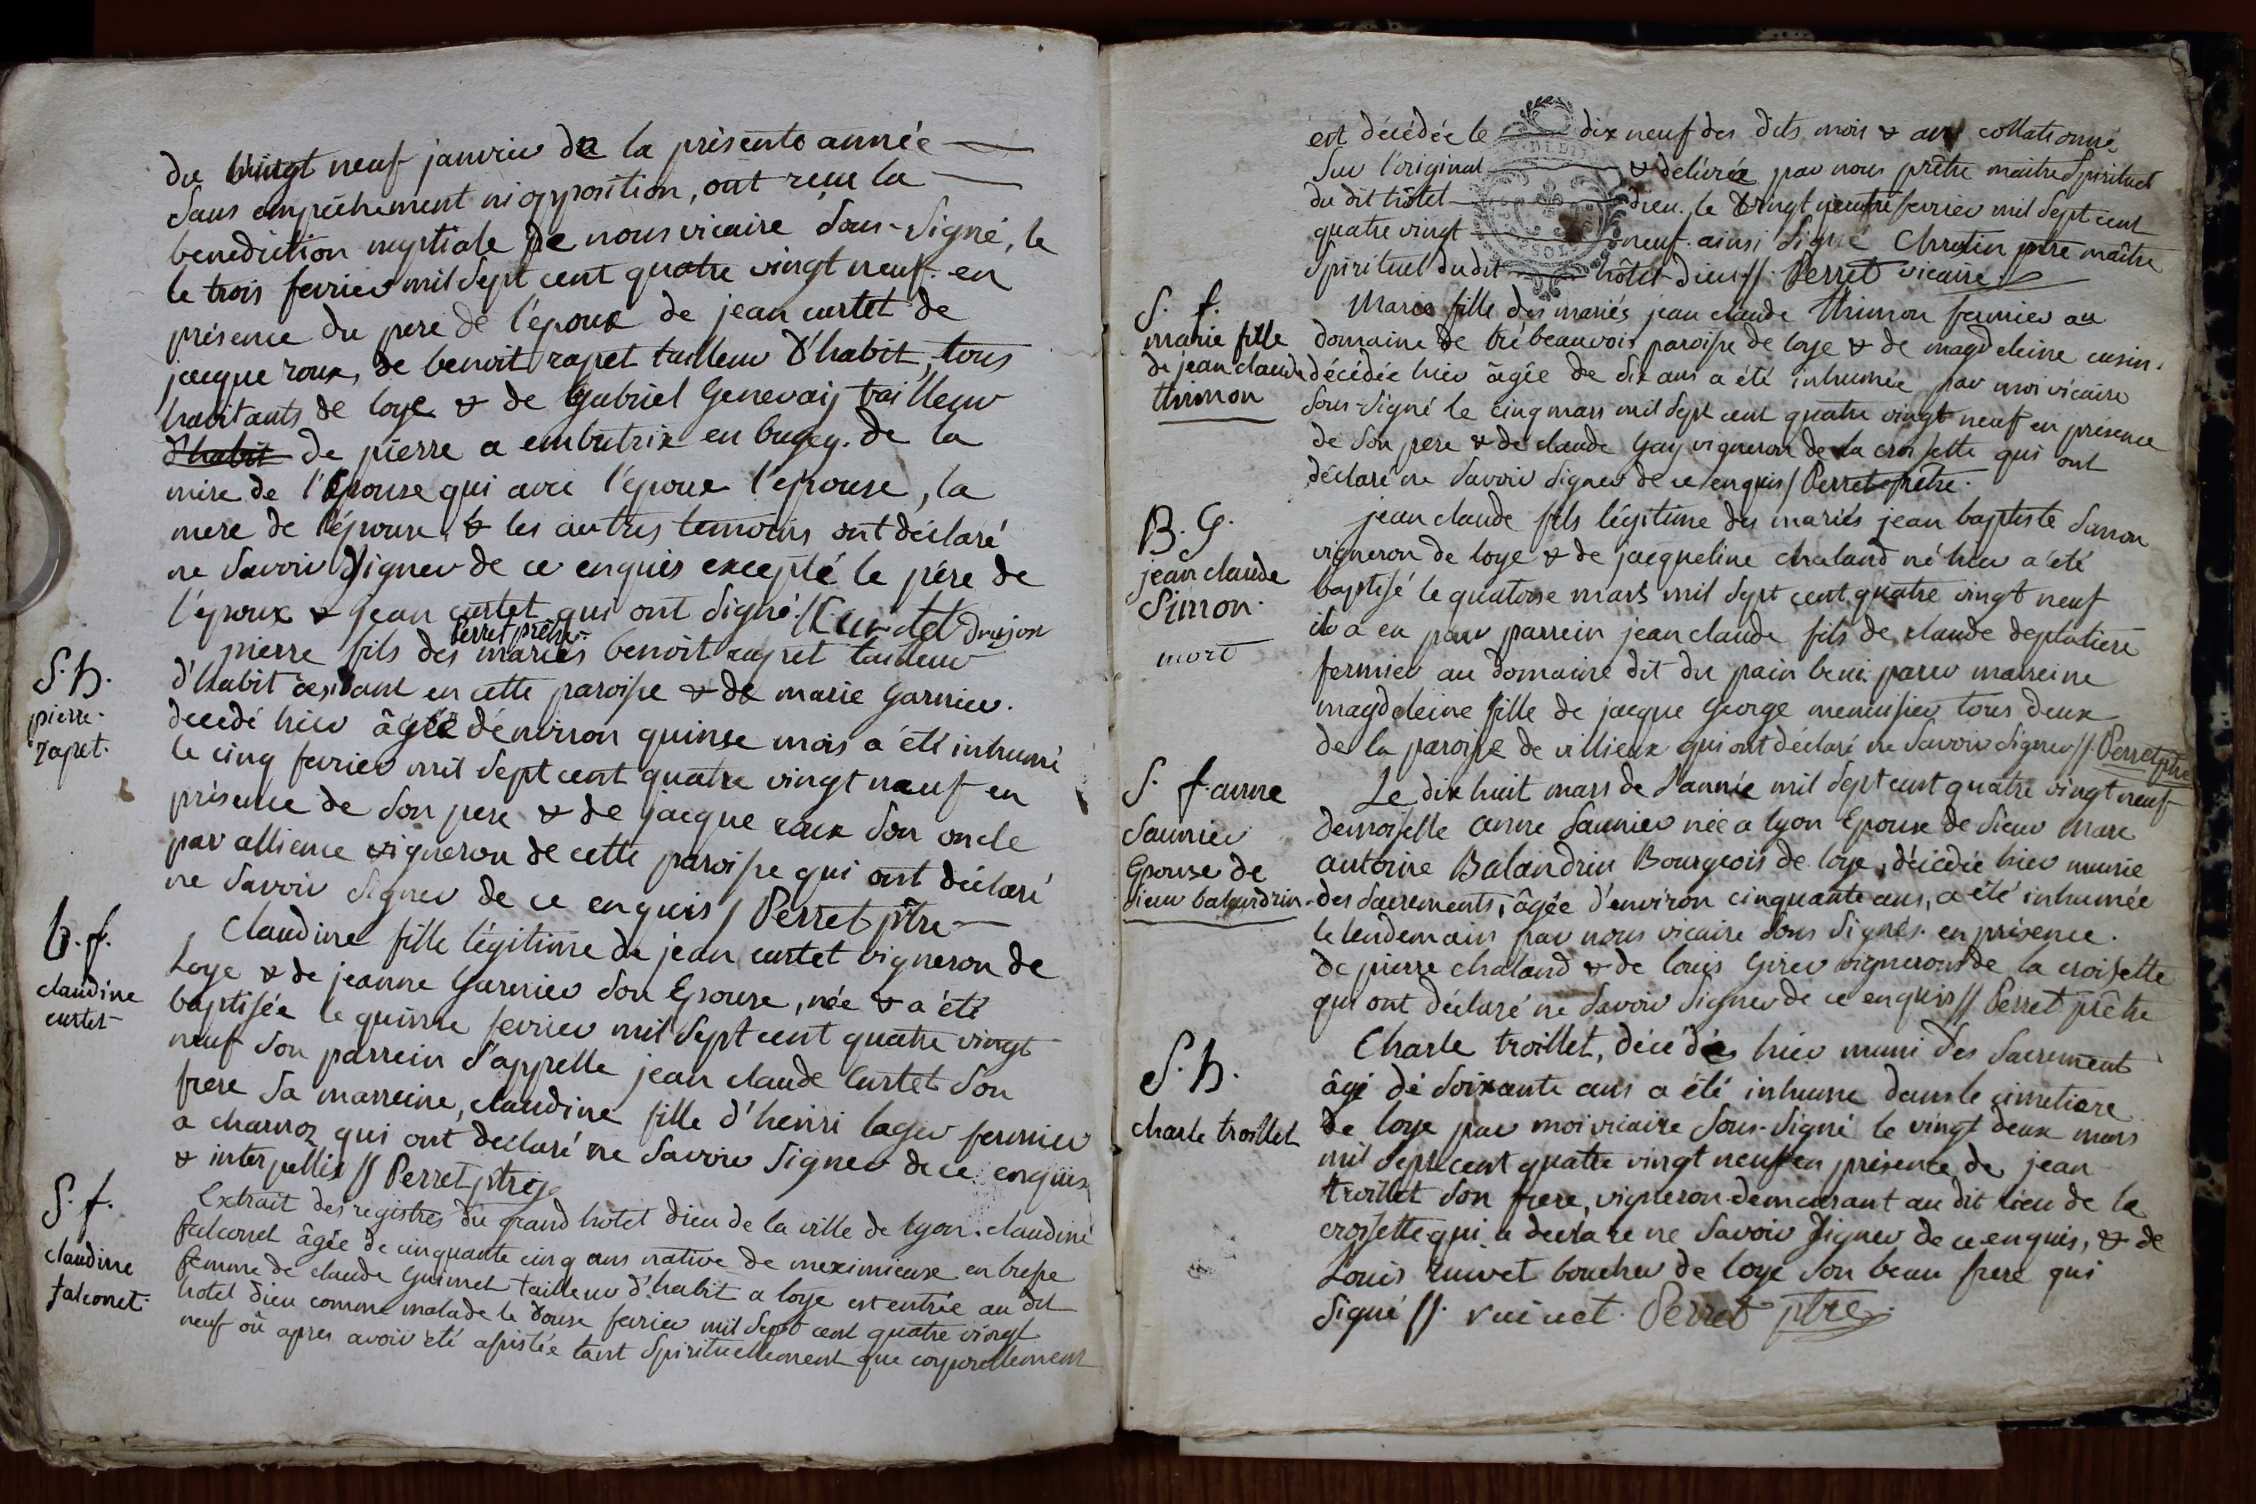 du vingt neuf janvier de la présente année
sans empêchement ni opposition, ont reçu la
benediction nuptiale de nous vicaire sous-signé, le
le trois fevrier mil sept cent quatre vingt neuf. en
présence du pere de l'époux de jean curtet de
jacque roux, de benoit rapet tailleur d'habit, tous
habitants de loye & de Gabriel Genevaij tailleur
d'habit de pierre a embutrix en bugey. de la
mere de l'Epouse qui avec l'époux l'epouse, la
mere de l'épouse, & les autres temoins ont déclaré
ne Savoir Signer de ce enquis excepté le pére de
l'époux & jean curtet qui ont signé // Curtet drujon
Perret prêtre.
S. h.
pierre
rapet.
pierre fils des mariés benoit rapet tailleur
d'habit residant en cette paroisse & de marie Garnier.
decedé hier âgé d'environ quinse mois a été inhumé
le cinq fevrier mil sept cent quatre vingt neuf en
présence de Son pere & de jacque roux Son oncle
par allience vigneron de cette paroisse qui ont déclaré
ne Savoir Signer de ce enquis / Perret ptre
b. f.
claudine
curtet
Claudine fille légitime de jean curtet vigneron de
Loye & de jeanne Garnier Son Epouse, née & a été
baptisée le quinse fevrier mil Sept cent quatre vingt
neuf Son parrein S'appelle jean claude Curtet Son
frere Sa marreine, claudine fille d'henri lager fermier
a charnoz qui ont declaré ne Savoir Signer de ce enquis
& interpellés // Perret ptre
S. f.
claudine
falconet.
Extrait des registres du grand hotel dieu de la ville de lyon. claudine
falconet âgée de cinquante cinq ans native de meximieux en bresse
femme de claude Guimet tailleur d'habit a loye est entrée au dit
hotel dieu comme malade le douse fevrier mil Sept cent quatre vingt
neuf où apres avoir été assistée tant Spirituellement que corporellement
est décédée le dix neuf des dits mois & an collationné
Sur l'original & délivrée par nous prêtre maitre Spirituel
du dit hôtel dieu. le vingt fevrier mil Sept cent
quatre vingt neuf. ainsi Signé Chretin ptre maître
Spirituel dudit hôtel dieu //. Perret vicaire
S. f.
marie fille
de jean claude
thimon
Marie fille des mariés jean claude thimon fermier au
domaine de trébeauvois paroisse de loye & de magdeleine cusin.
décédée hier âgée de dix ans a été inhumée par moi vicaire
Sous-Signé le cinq mars mil Sept cent quatre vingt neuf en presence
de Son pere & de claude Gay vigneron de la croisette qui ont
déclaré ne Savoir Signer de ce enquis / Perret prêtre.
B. G.
jean claude
Simon.
mort
jean claude fils légitime des mariés jean baptiste Simon
vigneron de loye & de jacqueline chaland né hier a été
baptisé le quatorse mars mil Sept cent quatre vingt neuf
il a eu pour parrein jean claude fils de claude deplatiere
fermier au domaine dit du pain beni pour marreine
magdeleine fille de jacque George menuisier tous deux
de la paroisse de villieux qui ont déclaré ne Savoir Signer // Perret ptre
S. f. anne
Saunier
Epouse de
sieur balandrin
Le dix huit mars de l'année mil Sept cent quatre vingt neuf
demoiselle anne Saunier née a lyon Epouse de Sieur Marc
antoine Balandrin Bourgeois de loye, décédée hier munie
des Sacrements, âgée d'environ cinquante ans, a été inhumée
le lendemain par nous vicaire Sous Signés. en présence.
de pierre chaland & de louis Girer vignerons de la croisette
qui ont déclaré ne Savoir Signer de ce enquis // Perret prêtre
S. h.
charle troillet
Charle troillet, décédé hier muni des Sacrement
âgé de Soixante ans a été inhumé dans le cimetiere
de loye par moi vicaire Sous-Signé le vingt deux mars
mil Sept cent quatre vingt neuf en présence de jean
troillet Son frere, vigneron demeurant au dit lieu de la
croisette qui a declaré ne Savoir Signer de ce enquis, & de
Louis ruivet boucher de loye Son beau frere qui
Signé //. ruivet. Perret ptre.